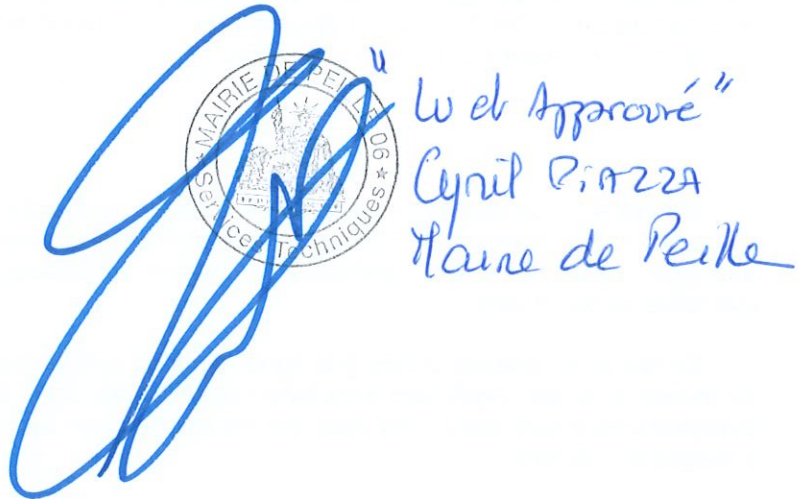 MAIRIE DE PEILLE 06
* Services Techniques *
"Lu et Approuvé"
Cyril PIAZZA
Maire de Peille